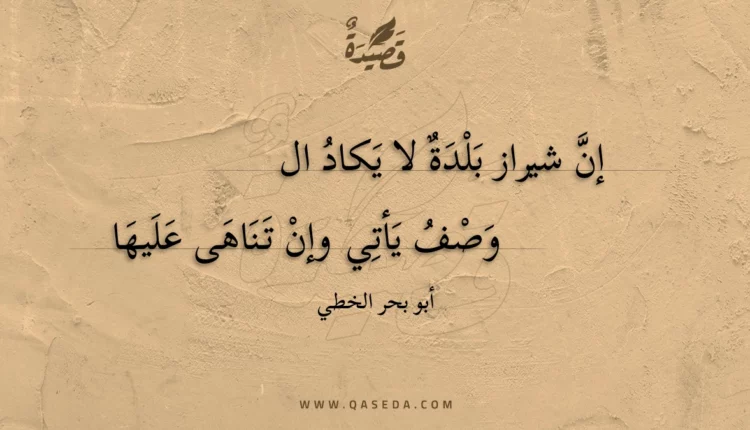 قَصِيْدَةٌ
إنَّ شيراز بَلْدَةٌ لا يَكادُ ال
وَصْفُ يَأتِي وإنْ تَنَاهَى عَلَيهَا
أبو بحر الخطي
WWW.QASEDA.COM